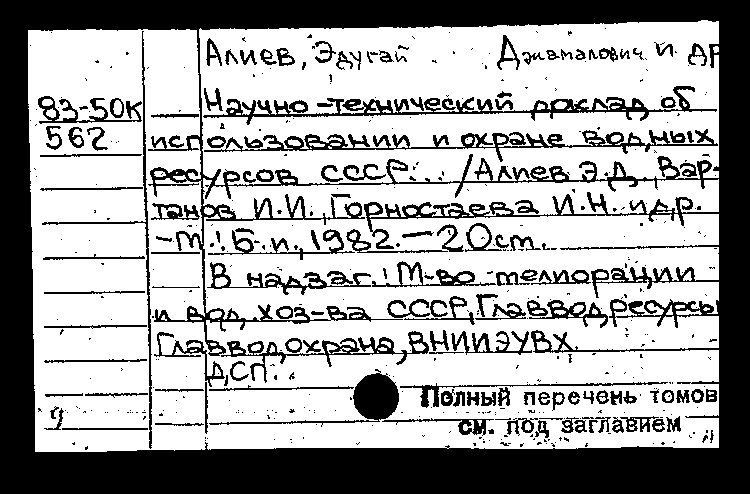 Алиев, Эдугай Джамалович и др
83-50К Научно-технический доклад об
562 использовании и охране водных
ресурсов СССР... /Алиев Э.Д., Вар-
танов И.И., Горностаева И.Н. и др.
-М.: Б. и., 1982.-20 ст.
В надзаг.: М-во мелиорации
и вод. хоз-ва СССР, Главводресурсы
Главводохрана, ВНИИЭУВХ.
ДСП.
Полный перечень томов
см. под заглавием